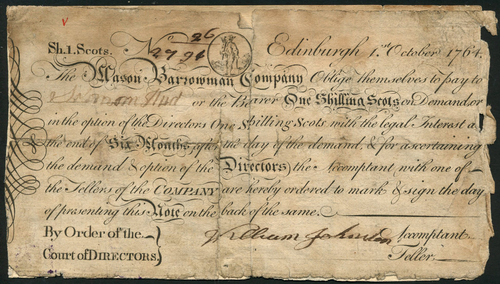 v
Sh. 1. Scots. No 26
2794 Edinburgh 1st October 1764.
The Mason Barrowman Company Oblige themselves to pay to
or the Bearer One Shilling Scots on Demand or
in the option of the Directors One Shilling Scots with the legal Interest at
the end of Six Months after the day of the demand, & for ascertaining
the demand & option of the Directors the Accomptant with one of
the Tellers of the COMPANY are hereby ordered to mark & sign the day
of presenting this Note on the back of the same.
By Order of the William Johnston Accomptant
Court of DIRECTORS, Teller